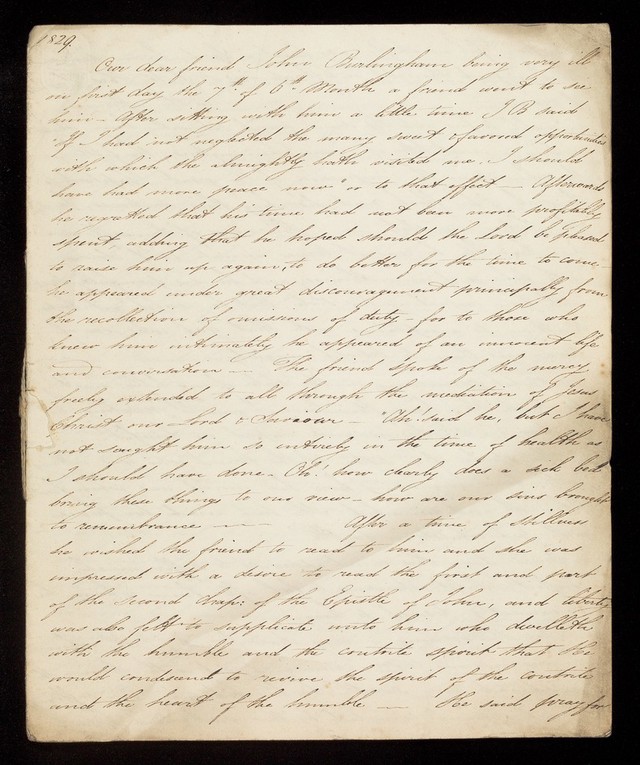 1829.
Our dear friend John Burlingham being very ill
on first day the 7th. of 6th. Month a friend went to see
him – After sitting with him a little time J B said
"If I had not neglected the many sweet & favored opportunities
with which the almighty hath visited me, I should
have had more peace now" or to that effect – Afterwards
he regretted that his time had not been more profitably
spent, adding that he hoped should the Lord be pleased
to raise him up again, to do better for the time to come –
he appeared under great discouragement principally from
the recollection of omissions of duty – for to those who
knew him intimately he appeared of an innocent life
and conversation – The friend spoke of the mercy
freely extended to all through the mediation of Jesus
Christ our Lord & Saviour – "Ah! said he, but I have
not sought him so entirely in the time of health as
I should have done – Oh! how clearly does a sick bed
bring these things to our view – how are our sins brought
to remembrance – – After a time of stillness
he wished the friend to read to him and she was
impressed with a desire to read the first and part
of the second chap: of the Epistle of John, and liberty
was also felt to supplicate unto him who dwelleth
with the humble and the contrite spirit that He
would condescend to revive the spirit of the contrite
and the heart of the humble – He said pray for